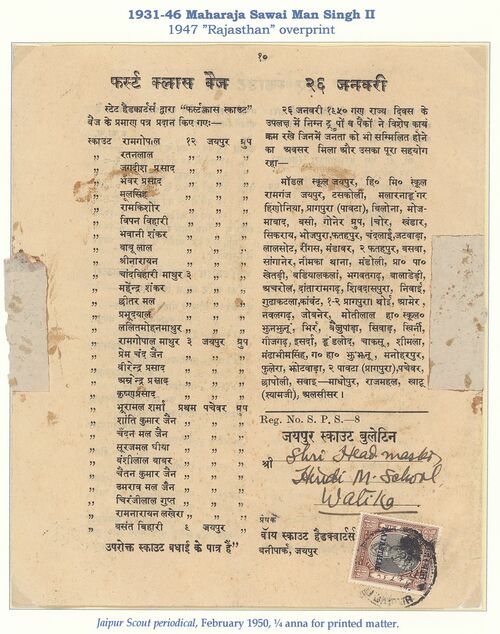 1931-46 Maharaja Sawai Man Singh II
1947 "Rajasthan" overprint
१०
फर्स्ट क्लास बैज
स्टेट हैडक्वार्टर्स द्वारा “फर्स्टक्लास स्काउट”
बैज के प्रमाण पत्र प्रदान किए गए:—
स्काउट रामगोपाल १२ जयपुर ग्रुप
„ रतनलाल „ „ „
„ जगदीश प्रसाद „ „ „
„ भंवर प्रसाद „ „ „
„ मूलसिंह „ „ „
„ रामकिशोर „ „ „
„ विपन विहारी „ „ „
„ भवानी शंकर „ „ „
„ बाबू लाल „ „ „
„ श्रीनारायन „ „ „
„ चांदविहारी माथुर ३ „ „
„ महेन्द्र शंकर „ „ „
„ छीतर मल „ „ „
„ प्रभूदयाल „ „ „
„ ललितमोहनमाथुर „ „ „
„ रामगोपाल माथुर ३ जयपुर ग्रुप
„ प्रेम चंद जैन „ „ „
„ वीरेन्द्र प्रसाद „ „ „
„ अरेन्द्र प्रसाद „ „ „
„ कृष्णप्रसाद „ „ „
„ भूरामल शर्मा प्रथम पचेवर ग्रुप
„ शांति कुमार जैन „ „ „
„ चंदन मल जैन „ „ „
„ सूरजमल धीया „ „ „
„ बंशीलाल यावर „ „ „
„ चैतन कुमार जैन „ „ „
„ उमराव मल जैन „ „ „
„ चिरंजीलाल गुप्त „ „ „
„ रामनारायन लखेरा „ „ „
„ बसंत बिहारी ६ जयपुर „
उपरोक्त स्काउट बधाई के पात्र हैं”
२६ जनवरी
२६ जनवरी १९५० गण राज्य दिवस के
उपलक्ष में निम्न ट्रुपों व पैकों ने विशेष कार्य
क्रम रखे जिनमें जनता को भी सम्मिलित होने
का अवसर मिला और उसका पूरा सहयोग
रहा—
मॉडल स्कूल जयपुर, हि० मि० स्कूल
रामगंज जयपुर, टसकोला, मलारनाडूगर
हिणोनिया, प्रागपुरा (पावटा), बिलोना, मोज-
माबाद, बसी, गोनेर ग्रुप, चोर, खंडार,
सिकराय, भोजपुरा, फतहपुर, चंदलाई, जटवाड़ा,
लालसोट, रींगस, मंडावर, २ फतहपुर, बसवा,
सांगानेर, नीमका थाना, मंडोली, प्रा० पा०
खेतड़ी, बडियालकलां, भगवतगढ़, वालाडेडी,
अचरोल, दांतारामगढ़, शिवदासपुरा, निवाई,
गुढाकटला, कांवंट, १-२ प्रागपुरा थोई, आमेर
नवलगढ़, जोवनेर, मोतीलाल हा० स्कूल
झुनझुनू, भिरं, बैलूपाड़ा, सिवाड़, खिर्नी,
गीजगढ़, इसर्दा, डूडलोद, चाकसू, शीमला,
मंढाभीमसिंह, ग० हा० झुनझनू, मनोहरपुर,
फुलेरा, झोटवाड़ा, २ पावटा (प्रागपुरा), पचेवर,
छापोली, सवाइ—माधोपुर, राजमहल, खाटू
(स्यामजी), अलसीसर।
Reg. No. S. P. S.—8
जयपुर स्काउट बुलेटिन
श्री Shri Head master
Hindi M. School
Watika
प्रेषक
बॉय स्काउट हैडक्वार्टर्स
बनीपार्क, जयपुर
Jaipur Scout periodical, February 1950, ¼ anna for printed matter.